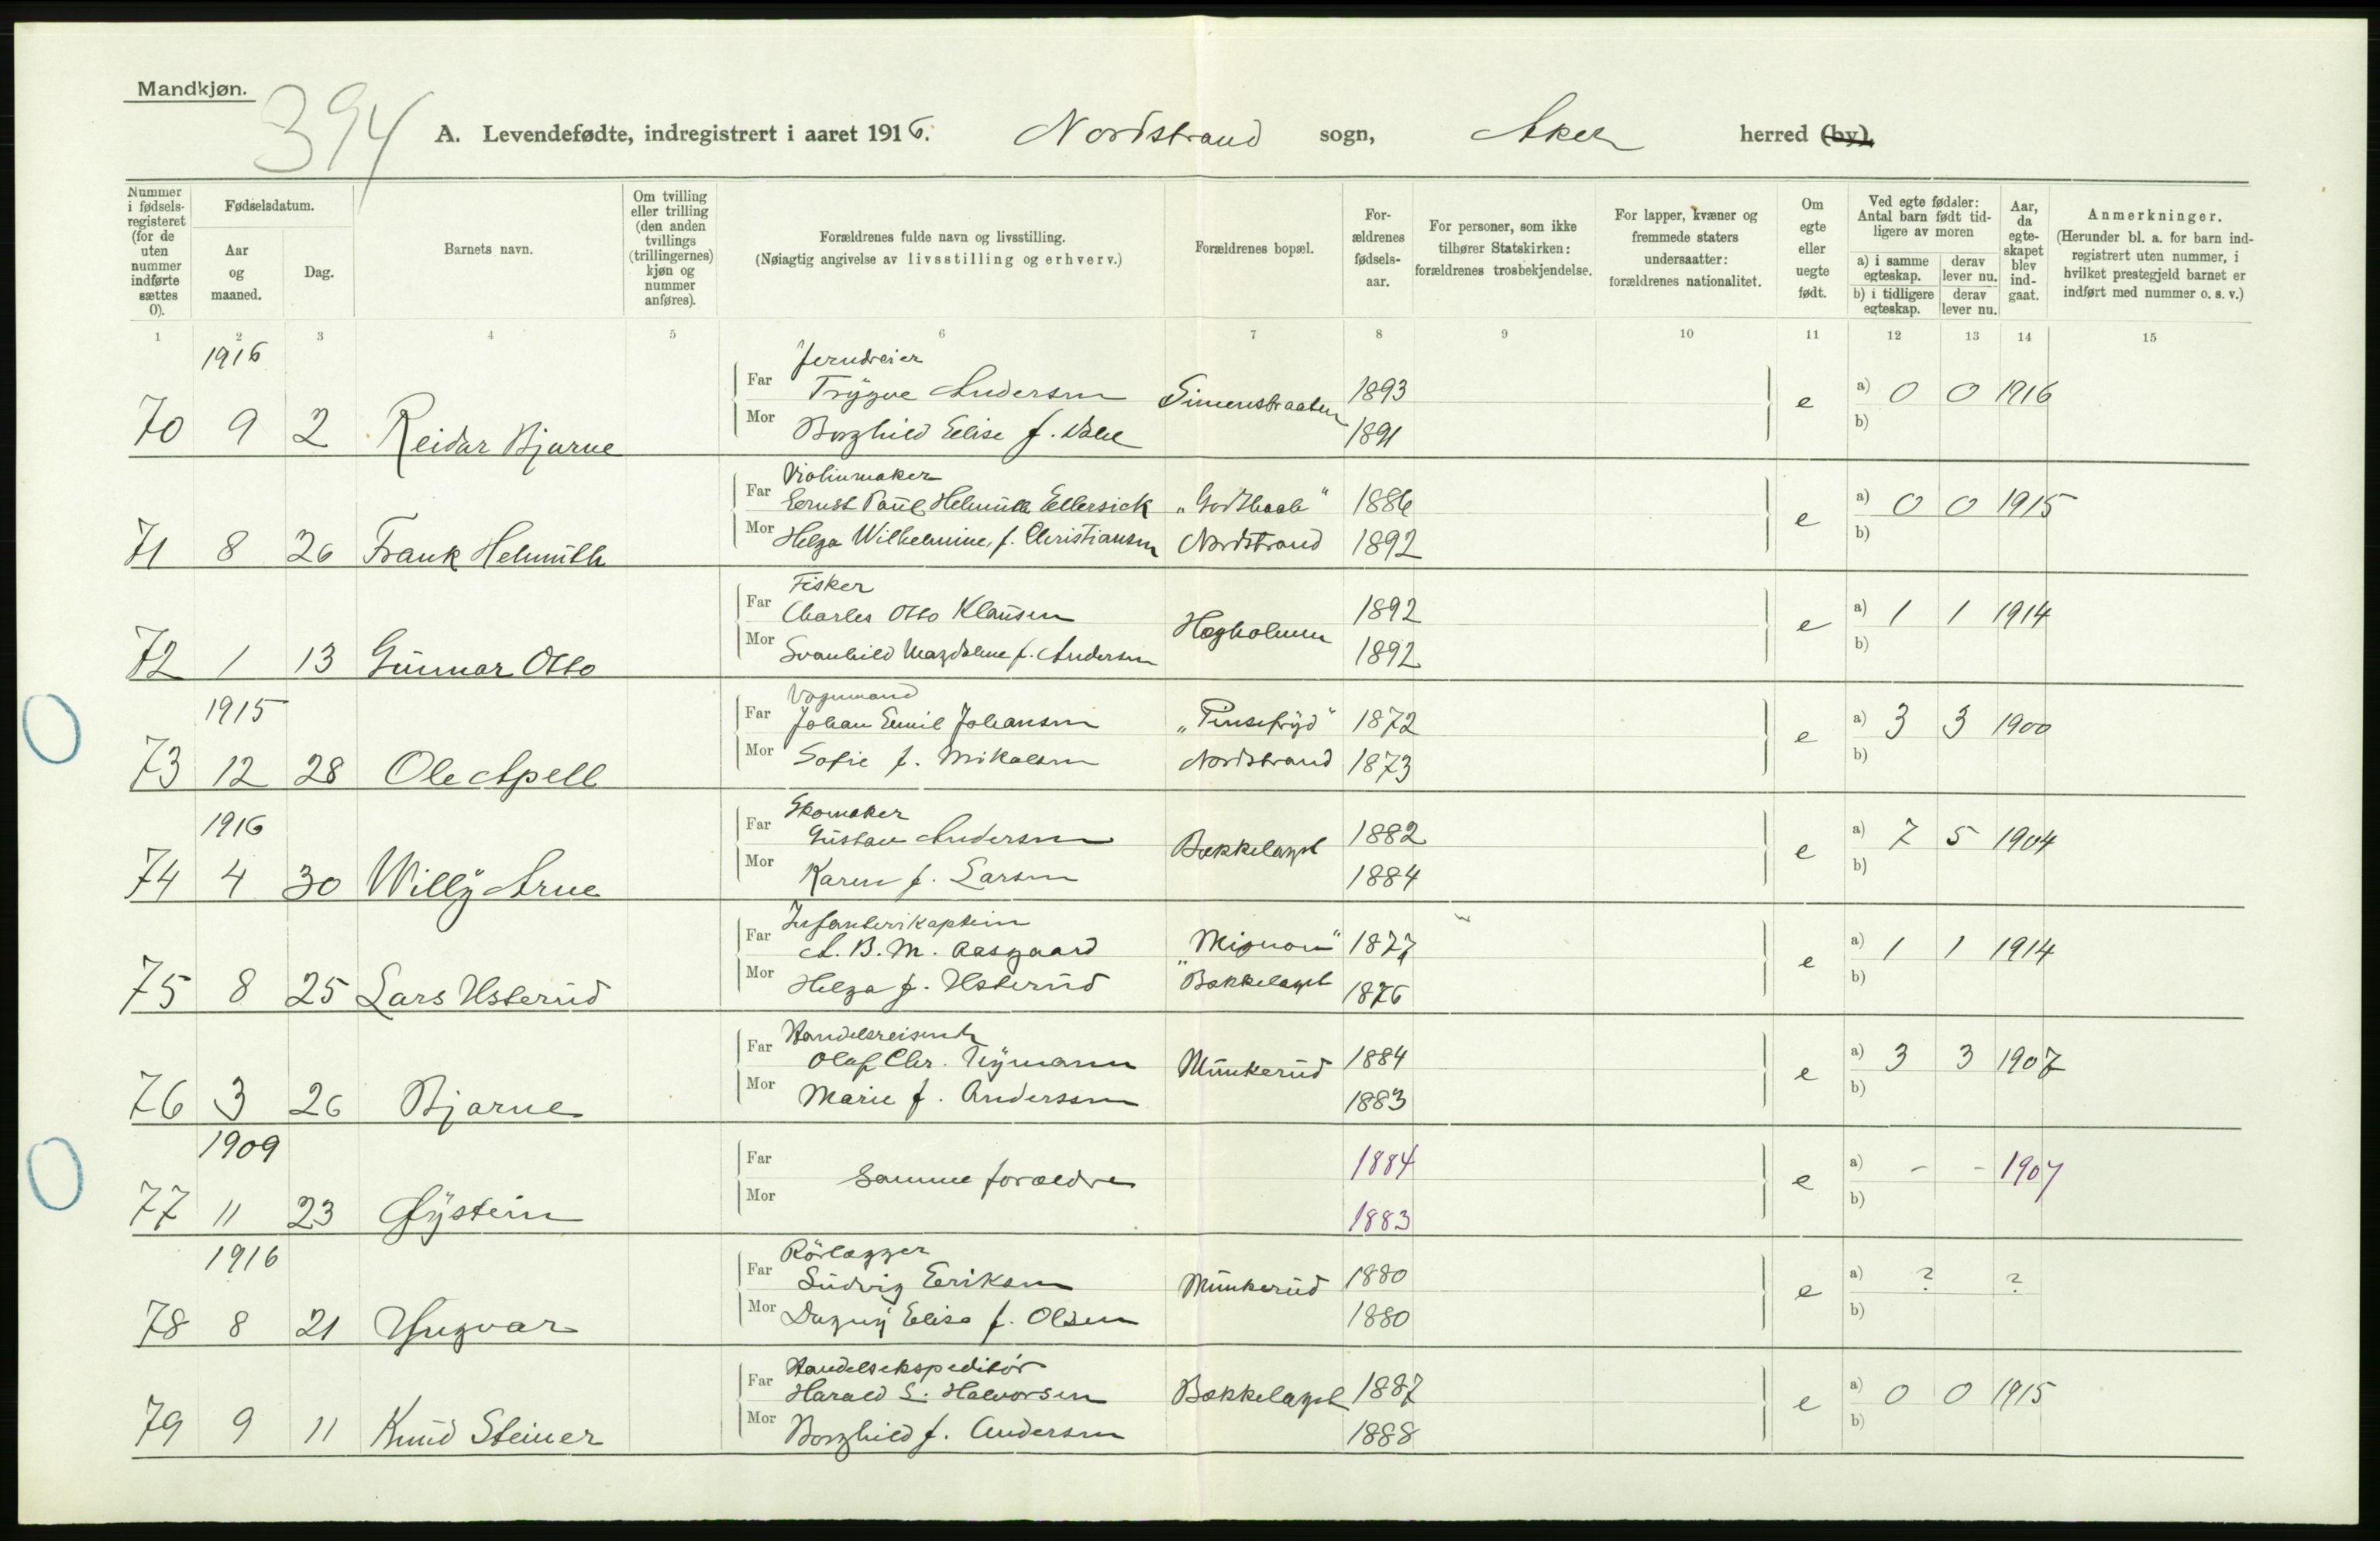 Mandkjøn.
394
A. Levendefødte, indregistrert i aaret 1916. Nordstrand sogn, Aker herred (by).
Nummer i fødselsregisteret (for de uten nummer indførte sættes 0).
Fødselsdatum.
Aar og maaned.
Dag.
Barnets navn.
Om tvilling eller trilling (den anden tvillings (trillingernes) kjøn og nummer anføres).
Forældrenes fulde navn og livsstilling.
(Nøiagtig angivelse av livsstilling og erhverv.)
Forældrenes bopæl.
Forældrenes fødselsaar.
For personer, som ikke tilhører Statskirken: forældrenes trosbekjendelse.
For lapper, kvæner og fremmede staters undersaatter: forældrenes nationalitet.
Om egte eller uegte født.
Ved egte fødsler: Antal barn født tidligere av moren
a) i samme egteskap. derav lever nu.
b) i tidligere egteskap. derav lever nu.
Aar, da egteskapet blev indgaat.
Anmerkninger.
(Herunder bl. a. for barn indregistrert uten nummer, i hvilket prestegjeld barnet er indført med nummer o. s. v.)
1 2 3 4 5 6 7 8 9 10 11 12 13 14 15
1916
Jerndreier
Far Trygve Andersen Simenstraaten 1893 e a) 0 0 1916
70 9 2 Reidar Bjarne
Mor Borghild Elise f. 1891 b)
Violinmaker
Far Ernst Paul Helmuth Ellersick "Godthaab" 1886 e a) 0 0 1915
71 8 26 Frank Helmuth
Mor Helga Wilhelmine f. Christiansen Nordstrand 1892 b)
Fisker
Far Charles Otto Klausen Hegholmen 1892 e a) 1 1 1914
72 1 13 Gunnar Otto
Mor Svanhild Magdalene f. Andersen 1892 b)
1915
Vognmand
Far Johan Emil Johansen "Pinsefryd" 1872 e a) 3 3 1900
73 12 28 Ole Apell
Mor Sofie f. Mikalsen Nordstrand 1873 b)
1916
Skomaker
Far Gustav Andersen Bækkelaget 1882 e a) 7 5 1904
74 4 30 Willy Arne
Mor Karen f. Larsen 1884 b)
Infanterikaptein
Far A. B. M. Aasgaard "Mignon" 1877 e a) 1 1 1914
75 8 25 Lars Usterud
Mor Helga f. Usterud Bækkelaget 1876 b)
Handelsreisende
Far Olaf Chr. Nymann Munkerud 1884 e a) 3 3 1907
76 3 26 Bjarne
Mor Marie f. Anderssen 1883 b)
1909
Far Samme forældre 1884 e a) - - 1907
77 11 23 Øystein
Mor 1883 b)
1916
Rörlægger
Far Ludvig Eriksen Munkerud 1880 e a) ? ?
78 8 21 Yngvar
Mor Dagny Elise f. Olsen 1880 b)
Handelsekspeditør
Far Harald L. Halvorsen Bækkelaget 1887 e a) 0 0 1915
79 9 11 Knud Steiner
Mor Borghild f. Andersen 1888 b)